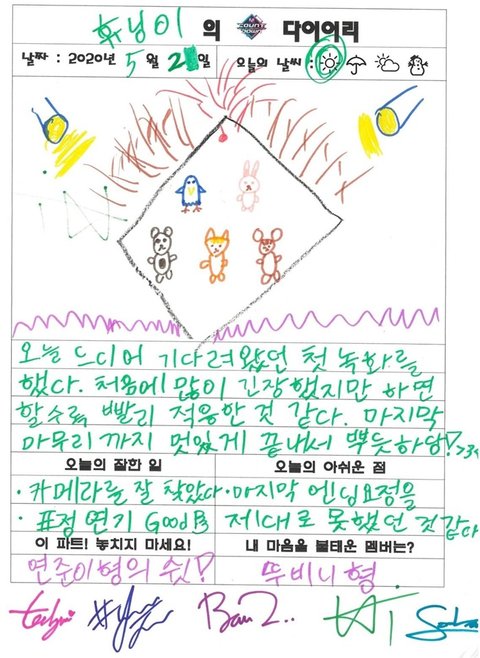 휴닝이 의 M COUNTDOWN 다이어리
날짜 : 2020년 5월 21일 오늘의 날씨 :
오늘 드디어 기다려왔던 첫 녹화를
했다. 처음에 많이 긴장했지만 하면
할수록 빨리 적응한 것 같다. 마지막
마무리까지 멋있게 끝내서 뿌듯하당!
오늘의 잘한 일 오늘의 아쉬운 점
· 카메라를 잘 찾았다 · 마지막 엔딩요정을
· 표정 연기 Good 제대로 못했던 것 같다
이 파트! 놓치지 마세요! 내 마음을 불태운 멤버는?
연준이형의 쉿! 뚜비니 형